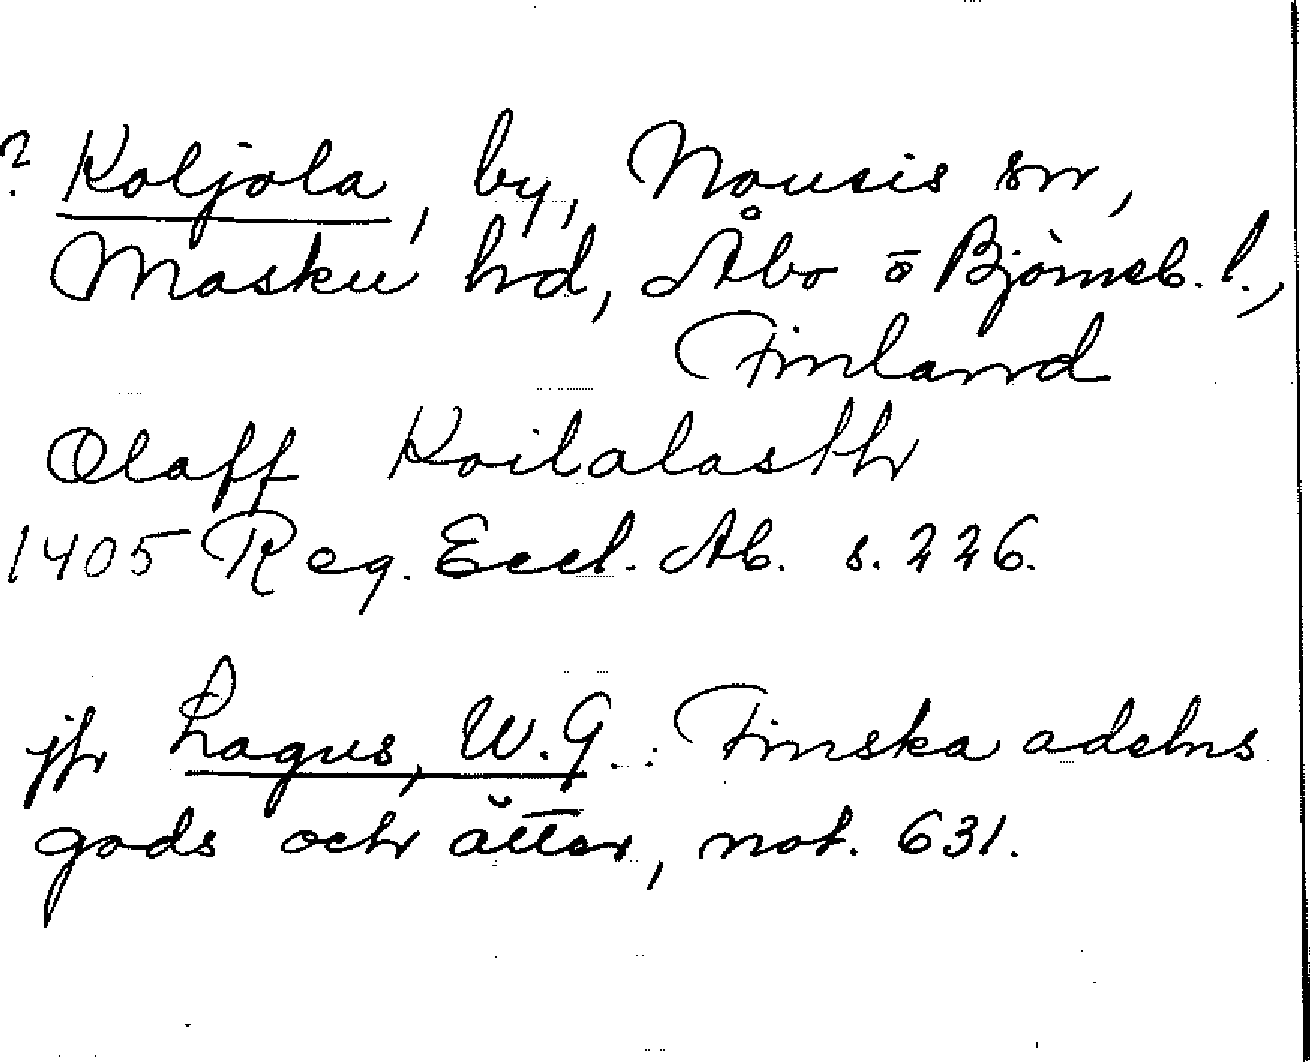 ? Koljola, by, Nousis sn,
Masku hd, Åbo o Björneb. l.,
Finland
Olaff Koilalasth
1405 Reg. Eccl. Ab. s. 226.
jfr Lagus, W.G.: Finska adelns
gods och ätter, not. 631.